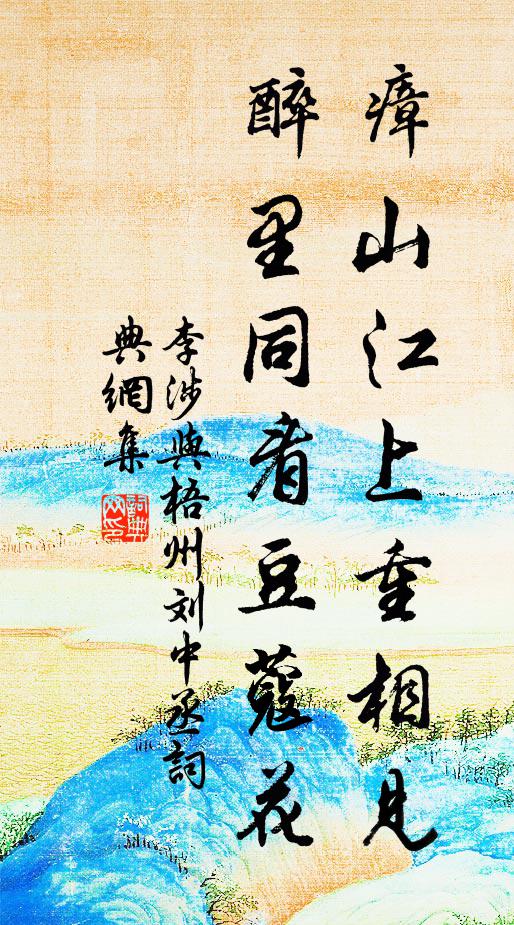 瘴山江上重相見
醉里同看豆蔻花
李涉與梧州刘中丞詞
典網集